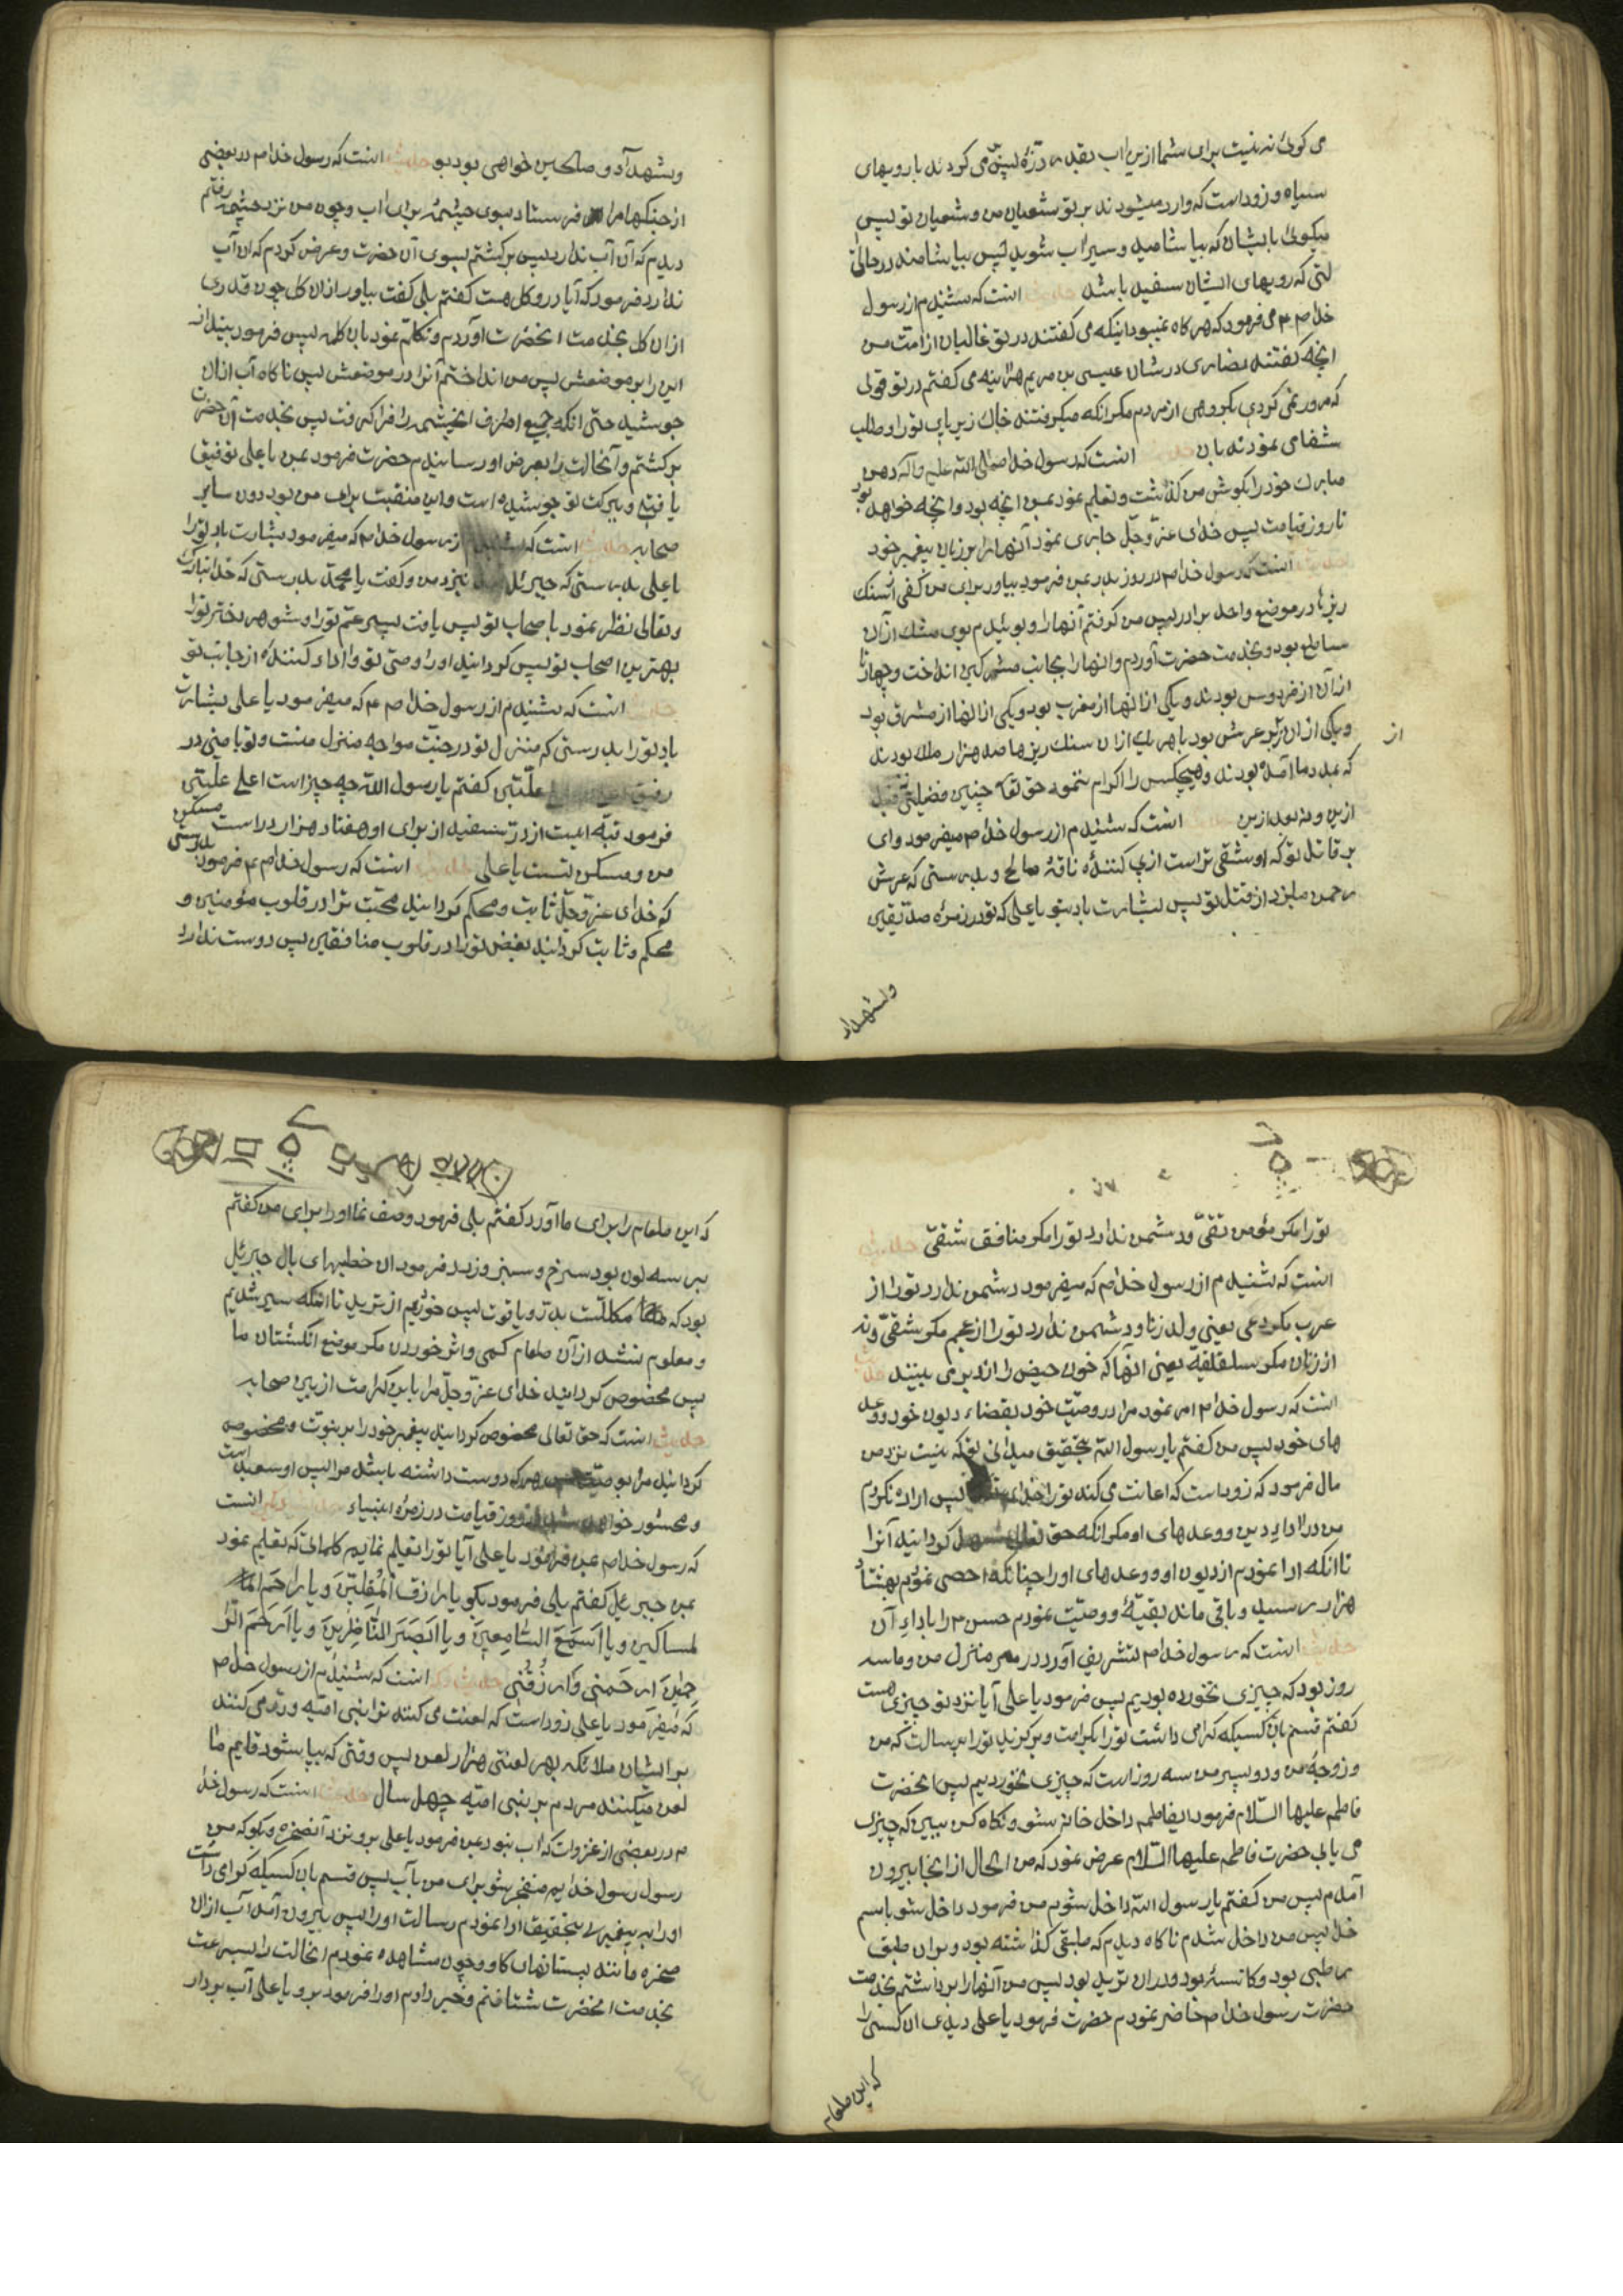 می کوئی نه نیست برای شما ازین اب بقدر ذرّهٔ پس می کردند با رویهای
سیاه و زود است که وارد میشوند بر تو شیعیان من و شیعیان تو پس
میکوئی بایشان که بیاشامید و سیراب شوید پس بیاشامند در حا
لتی که رویهای ایشان سفید باشد حدیث انست که شنیدم از رسول
خدا ص م می فرمود که هر کاه نمیبود اینکه می کفتند در تو غالیان از امت من
انچه کفتند نصاری در شان عیسی بن مریم هراینه می کفتم در تو قولی
که مرور نمی کردی بکروهی از مردم مکر انکه میکرفتند خاك زیر پای تو را و طلب
شفا می نمودند بان حدیث انست که رسول خدا صلی الله علیه وآله دهن
مبارك خود را بکوش من کذاشت و تعلیم نمود بمن انچه بود و انچه خواهد بود
تا روز قیامت پس خدای عزّ وجلّ جاری نمود آنها را بر زبان پیغمبر خود
حدیث انست که رسول خدا ص در روز بدر بمن فرمود بیاور برای من کفی از سنك
ریزها در موضع واحد برادر پس من کرفتم آنها را و بوئیدم بوی مشك از آن
ساطع بود و بخدمت حضرت آوردم و انها را بجانب مشرکین انداخت و چهار تا
از آن از فردوس بودند و یکی از انها از مغرب بود و یکی از انها از مشرق بود
و یکی از ان از زیر عرش بود با هر یك از ان سنك ریزها صد هزار ملك بودند
از
که بمدد ما آمده بودند و هیچکس را اکرام ننمود حق تعا چنین فضیلتی قبل
ازین و نه بعد ازین حدیث انست که شنیدم از رسول خدا ص میفرمود وای
بر قاتل تو که او شقی تر است از پی کنندهٔ ناقهٔ صالح و بدرستی که عرش
رحمن میلرزد از قتل تو پس بشارت باد بتو یا علی که تو در زمرهٔ صدّیقین
و شهدا
و شهدآء و صالحین خواهی بود بو حدیث انست که رسول خدا ص در بعضی
از جنکها مرا فرستاد بسوی چشمهٔ برای اب و چون من نزد چشمه رفتم
دیدم که آن آب ندارد پس برکشتم بسوی آن حضرت و عرض کردم که ان آب
ندارد فرمود که آیا در و کل هست کفتم بلی کفت بیاور ازان کل چون قدری
ازان کل بخدمت انحضرت آوردم و تکلّم نمود بان کل پس فرمود بینداز
این را بر موضعش پس من انداختم آنرا در موضعش پس ناکاه آب ازان
جوشید حتی انکه جمیع اطراف انچشمه را فرا کرفت پس بخدمت آن حضرت
برکشتم و آنحالت را بعرض او رسانیدم حضرت فرمود بمن یا علی توفیق
یافتی و ببرکت تو جوشیده است و این منقبت برای من بود دون سایر
صحابه حدیث انست که شنیدم از رسول خدا ص که میفرمود بشارت باد تو را
یا علی بدرستی که جبرئیل آمد بنزد من و کفت یا محمّد بدرستی که خدا تبارك
و تعالی نظر نمود باصحاب تو پس یافت پسر عمّ تو را و شوهر دختر تو را
بهترین اصحاب تو پس کردانید او را وصیّ تو و ادا کنندهٔ از جانب تو
حدیث انست که شنیدم از رسول خدا ص م که میفرمود یا علی بشارت
باد تو را بدرستی که منزل تو در جنّت مواجه منزل منست و تو با منی در
رفیق اعلی علّیین کفتم یا رسول اللّه چه چیز است اعلی علّیین
فرمود قبّه ایست از درّ سفید از برای او هفتاد هزار در است مسکن
من و مسکن تست یا علی حدیث انست که رسول خدا ص م فرمود بدرستی
که خدای عزّ وجلّ ثابت و محکم کردانید محبّت ترا در قلوب مؤمنین و
محکم و ثابت کردانید بغض تو را در قلوب منافقین پس دوست ندارد
تو را مکر مؤمن تقیّ و دشمن ندارد تو را مکر منافق شقیّ حدیث
انست که شنیدم از رسول خدا ص که میفرمود دشمن ندارد تو را از
عرب مکر دعی یعنی ولد زنا و دشمن ندارد تو را از عجم مکر شقیّ و نه
از زنان مکر سلقلقیّه یعنی انها که خون حیض را از دبر می بینند حدیث
انست که رسول خدا ص امر نمود مرا در وصیّت خود بقضاء دیون خود و وعد
های خود پس من کفتم یا رسول اللّه بتحقیق میدانی تو که نیست نزد من
مال فرمود که زود است که اعانت می کند تو را خدای پس اراده نکردم
من در ادای دین و وعدهای او مکر انکه حق تعالی سهل کردانید آنرا
تا انکه ادا نمودم از دیون او و وعدهای او را چنانکه احصی نمودم بهشتاد
هزار رسید و باقی ماند بقیّهٔ و وصیّت نمودم حسن را باداء آن
حدیث انست که رسول خدا ص تشریف آورد در منزل من و ما سه
روز بود که چیزی نخورده بودیم پس فرمود یا علی آیا نزد تو چیزی هست
کفتم قسم بان کسیکه کرامی داشت تو را بکرامت و برکزید تو را برسالت که من
و زوجهٔ من و دو پسر من سه روز است که چیزی نخوردیم پس انحضرت
فاطمه علیها السّلام فرمود ایفاطمه داخل خانه شو و نکاه کن ببین که چیزی
می یابی حضرت فاطمه علیها السّلام عرض نمود که من الحال از انجا بیرون
آمدم پس من کفتم یا رسول اللّه داخل شوم من فرمود داخل شو باسم
خدا پس من داخل شدم ناکاه دیدم که طبقی کذاشته بود و بران طبق
رطبی بود و کاسهٔ بود و دران ثرید بود پس من آنها را برداشتم بخدمت
حضرت رسول خدا ص حاضر نمودم حضرت فرمود یا علی دیدی ان کسی را
که این طعام
که این طعام را برای ما آورد کفتم بلی فرمود وصف نما او را برای من کفتم
بر سه لون بود سرخ و سبز و زرد فرمود ان خطیهای بال جبرئیل
بود که مکلّلست بدرّ و یاقوت پس خوردیم از ثرید تا انکه سیر شدیم
و معلوم نشد از آن طعام کمی و اثر خوردن مکر موضع انکشتان ما
پس مخصوص کردانید خدای عزّ وجلّ مرا باین کرامت از بین صحابه
حدیث انست که حق تعالی مخصوص کردانید پیغمبر خود را بر بنوّت و مخصوص
کردانید مرا بوصیّت پس هر که دوست داشته باشد مرا پس او سعید است
و محشور خواهد شد در روز قیامت در زمره انبیاء حدیث دیکر انست
که رسول خدا ص بمن فرمود یا علی آیا تو را تعلیم نمایم کلماتی که تعلیم نمود
بمن جبرئیل کفتم بلی فرمود بکو یا رازِقَ الْمُقِلّینَ وَ یا راحِمَ ا
لمساکینَ و یا اَسْمَعَ السّامِعینَ وَ یا اَبْصَرَ النّاظِرینَ وَ یا اَرْحَمَ الرّا
حِمینَ اِرْحَمْنی وَارْزُقْنی حدیث دیکر انست که شنیدم از رسول خدا ص م
که میفرمود یا علی زود است که لعنت می کنند ترا بنی امیّه و رد می کنند
بر ایشان ملائکه بهر لعنتی هزار لعن پس وقتی که بپا شود قایم ما
لعن میکنند مردم بر بنی امیّه چهل سال حدیث انست که رسول خدا
م در بعضی از غزوات که اب نبود بمن فرمود یا علی برو بنزد آنصخره و بکو که من
رسول رسول خدایم منفجر شو برای من بآب پس قسم بان کسیکه کرامی داشت
او را به پیغمبری بتحقیق ادا نمودم رسالت او را پس بیرون آمد آب ازان
صخره مانند پستانهای کاو و چون مشاهده نمودم انحالت را بسرعت
بخدمت انحضرت شتافتم و خبر دادم او را فرمود برو یا علی آب بردار